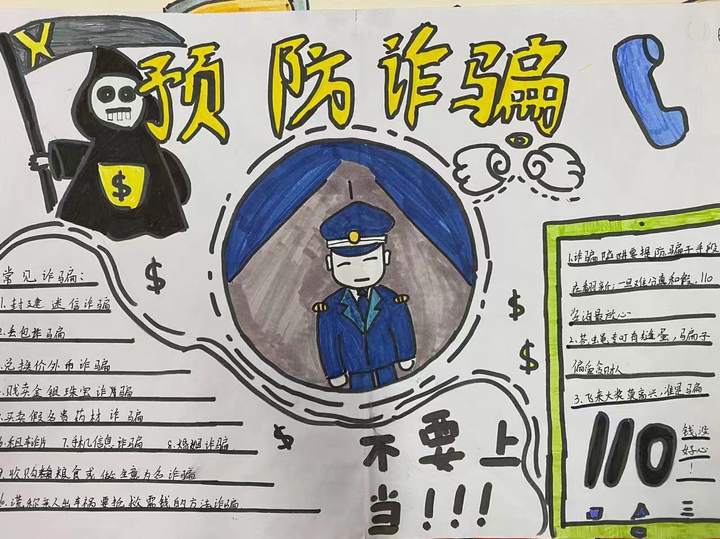 预防诈骗
常见诈骗：
1.封建迷信诈骗
2.丢包诈骗
3.兑换价外币诈骗
4.贱卖金银珠宝诈骗
5.买卖假名贵药材诈骗
7.手机信息诈骗 8.婚姻诈骗
9.收购粮食或做生意为名诈骗
谎称家人出车祸要抢救需钱的方法诈骗
$
$
$
$
$
不要上
当!!!
1.诈骗陷阱要提防骗子手段
在翻新；一旦难分真和假，110
咨询最放心
2.苍蝇专叮有缝蛋，骗子
偏爱
3.飞来大奖莫高兴，谁是骗
钱没
好心
！
110